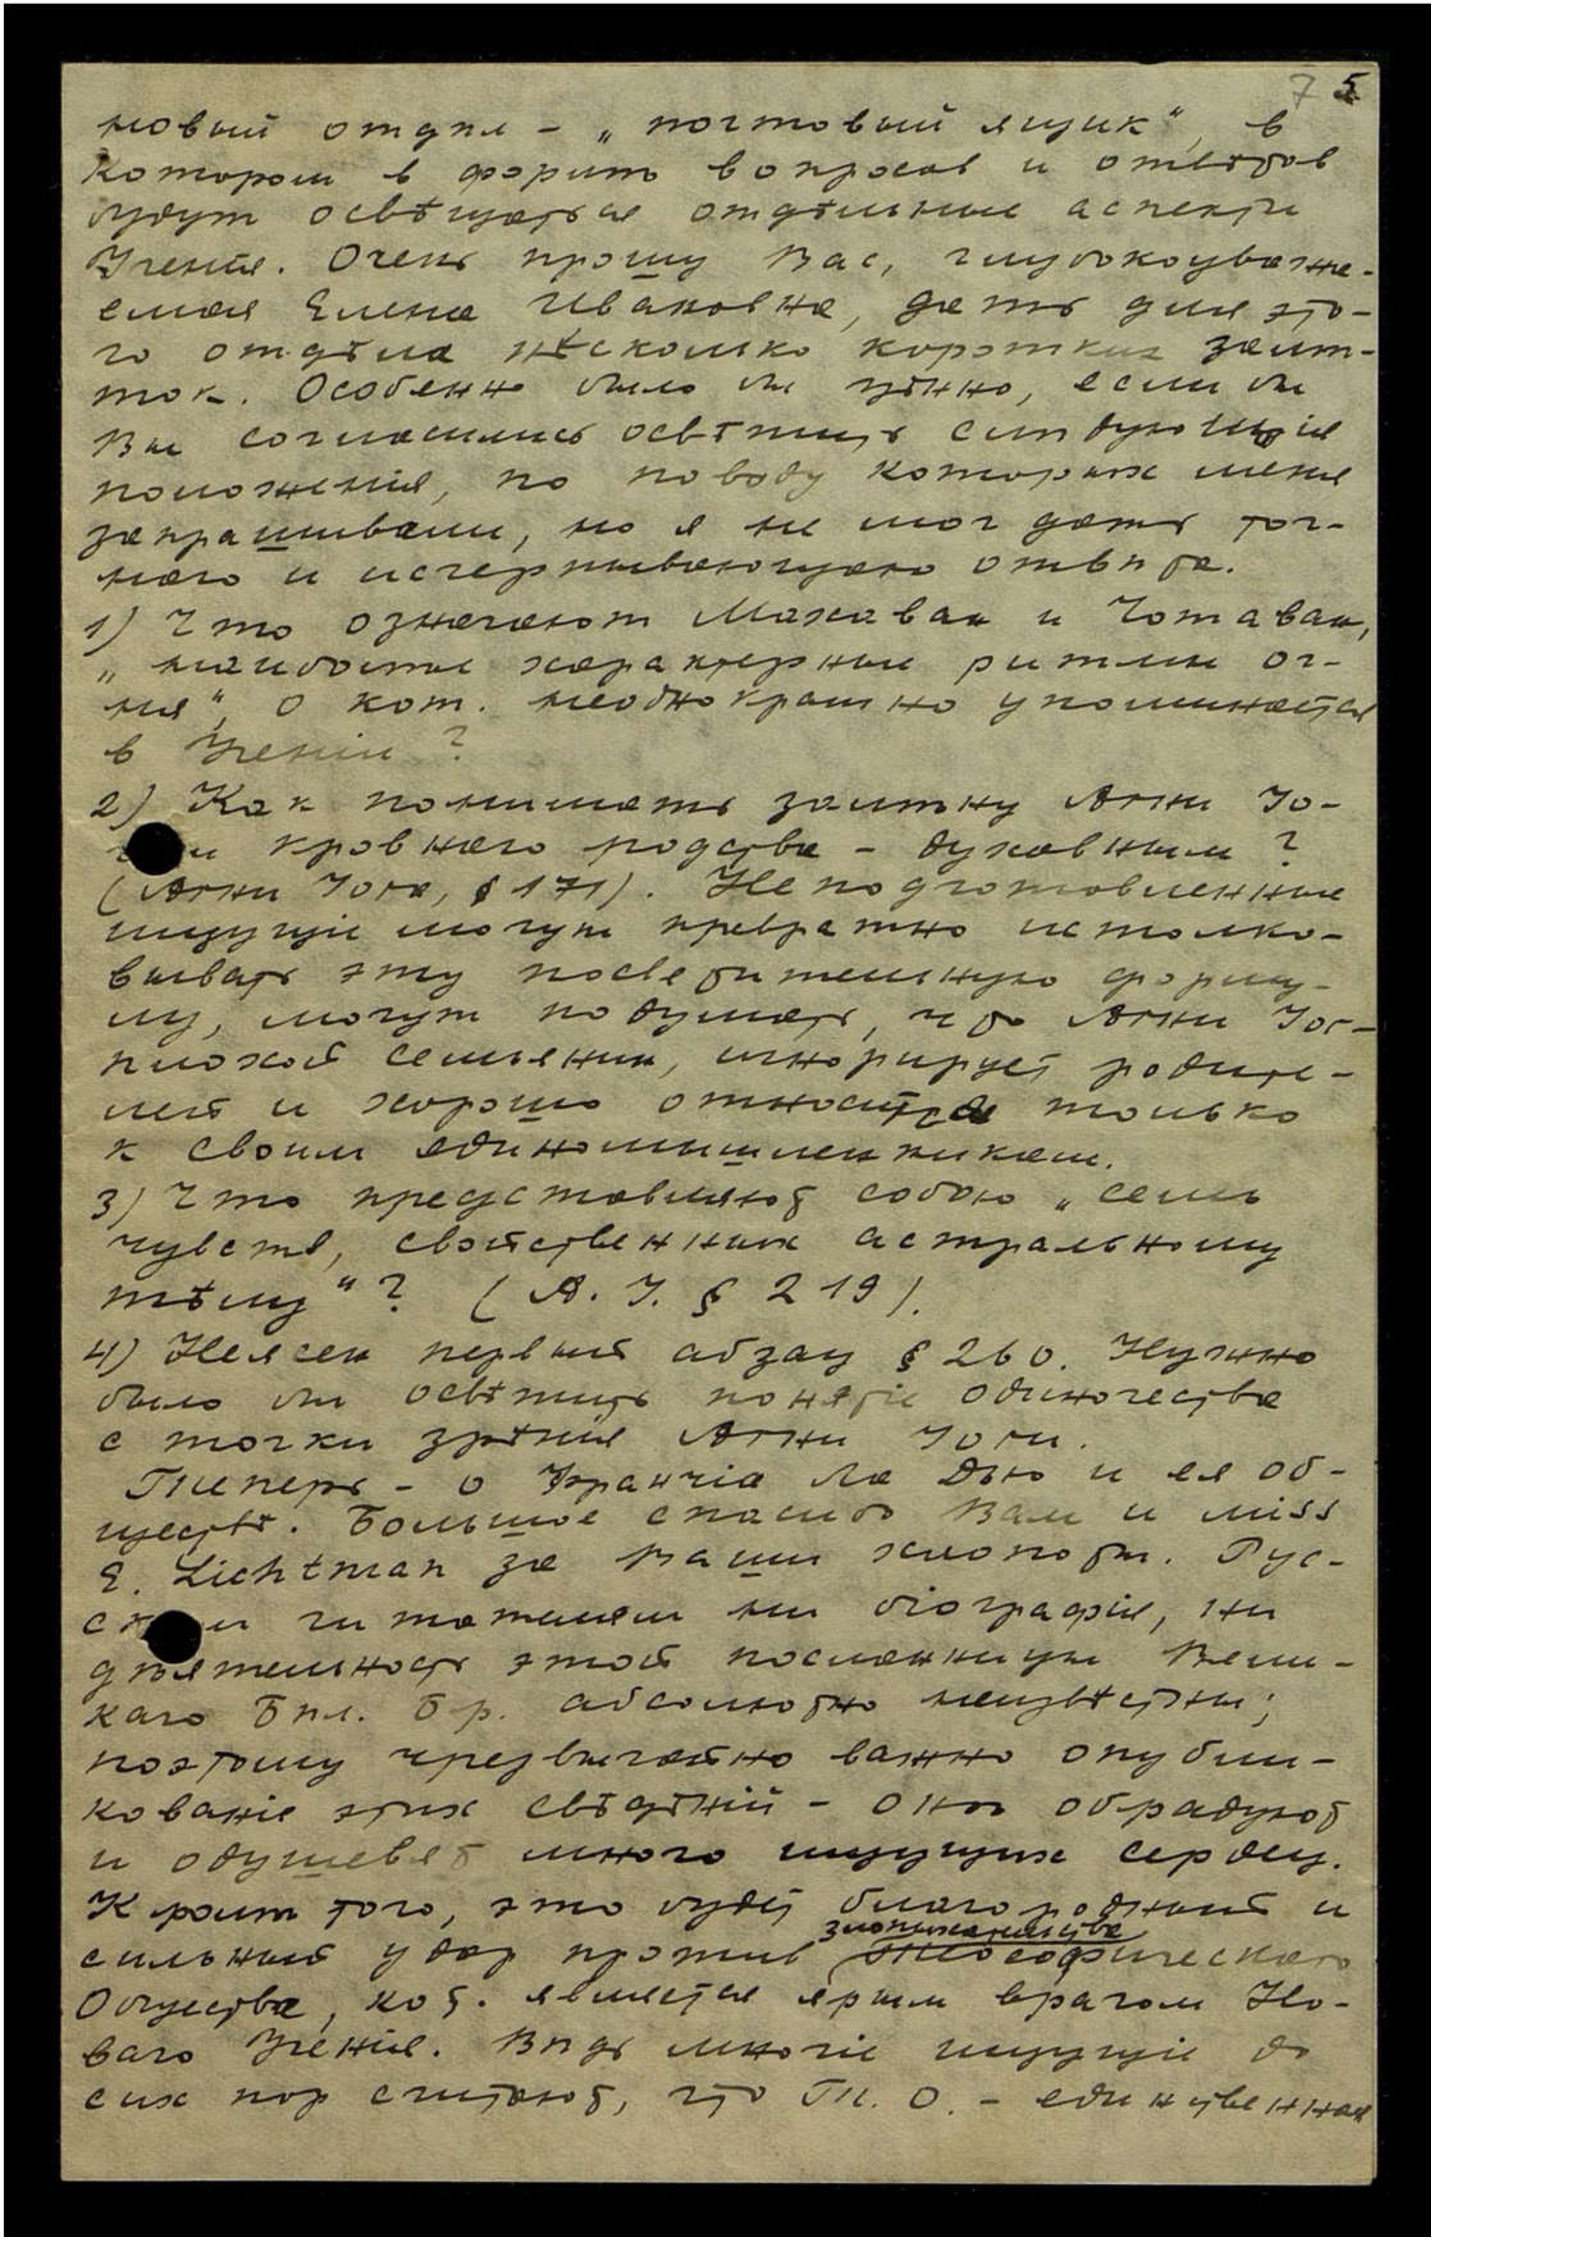 7 5
новый отдѣл – „почтовый ящик“, в
котором в формѣ вопросов и отвѣтов
будут освѣщаться отдѣльные аспекты
Ученія. Очень прошу Вас, глубокоуважа-
емая Елена Ивановна, дать для это-
го отдѣла нѣсколько коротких замѣ-
ток. Особенно было бы цѣнно, если бы
Вы согласились освѣтить слѣдующія
положенія, по поводу которых меня
запрашивали, но я не мог дать точ-
наго и исчерпывающаго отвѣта.
1) Что означают Махаван и Чотаван,
„наиболѣе характерные ритмы ог-
ня“, о кот. неоднократно упоминается
в Ученіи?
2) Как понимать замѣну Агни Йо-
и кровнаго родства – духовным?
(Агни Йога, § 171). Неподготовленные
ищущіе могут превратно истолко-
вывать эту послѣдительную форму-
лу, могут подумать, что Агни Йог –
плохой семьянин, игнорирует родите-
лей и хорошо относится только
к своим единомышленникам.
3) Что представляют собою „семь
чувств, свойственных астральному
тѣлу“? (А. Й. § 219).
4) Неясен первый абзац § 260. Нужно
было бы освѣтить понятіе одиночества
с точки зрѣнія Агни Йоги.
Теперь – о Франчіа Ла Дью и ея об-
ществѣ. Большое спасибо Вам и miss
E. Lichtman за Ваши хлопоты. Рус-
ским читателям ни біографія, ни
дѣятельность этой посланницы Вели-
каго Бѣл. Бр. абсолютно неизвѣстны;
поэтому чрезвычайно важно опубли-
кованіе этих свѣдѣній – они обрадуют
и одушевят много ищущих сердец.
Кромѣ того, это будет благородный и
злопыхательства
сильный удар против Теософическаго
Общества, кот. является ярым врагом Но-
ваго Ученія. Вѣдь многіе ищущіе до
сих пор считают, что Т. О. – единственная